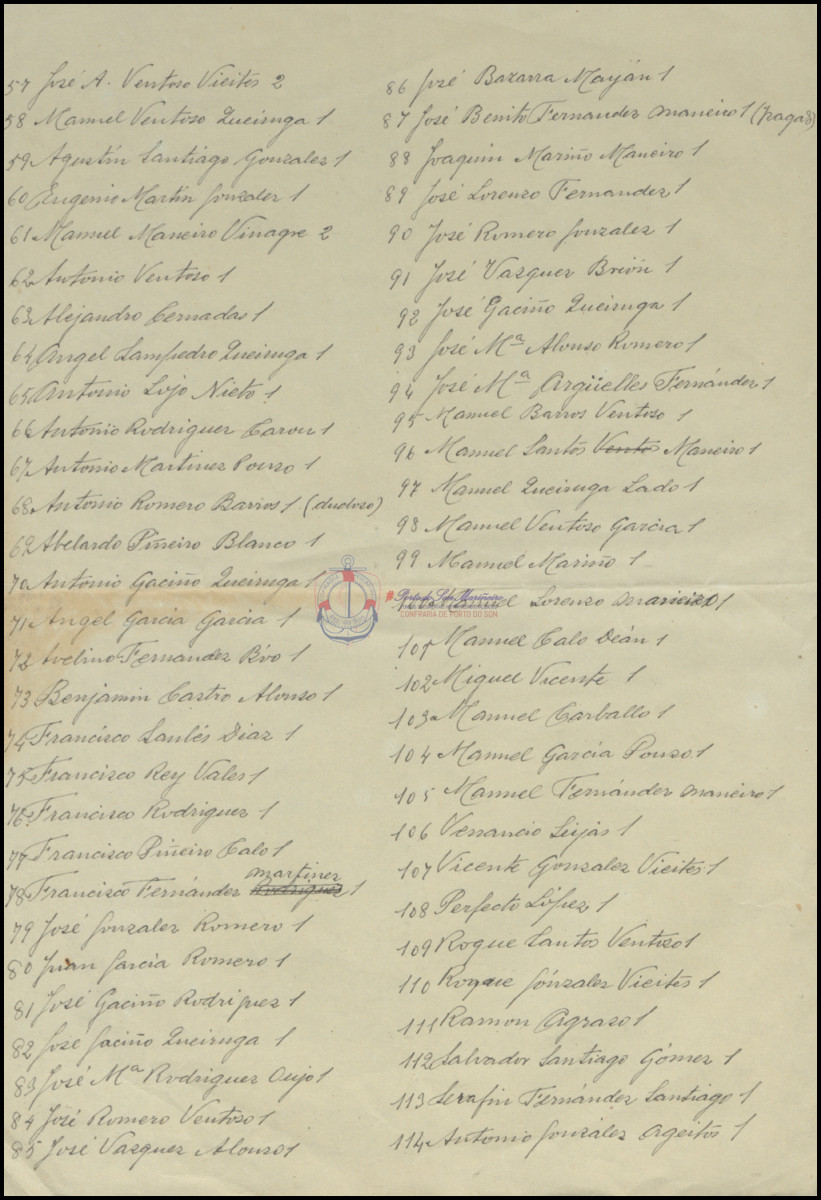 57 José A. Ventoso Vieitès 2
58 Manuel Ventoso Queiruga 1
59 Agustín Santiago Gonzalez 1
60 Eugenio Martin Gonzalez 1
61 Manuel Maneiro Vinagre 2
62 Antonio Ventoso 1
63 Alejandro Cernadas 1
64 Angel Sampedro Queiruga 1
65 Antonio Lojo Nieto 1
66 Antonio Rodriguez Carou 1
67 Antonio Martinez Pouso 1
68 Antonio Romero Barrios 1 (dudoso)
69 Abelardo Piñeiro Blanco 1
70 Antonio Gaciño Queiruga 1
71 Angel Garcia Garcia 1
72 Avelino Fernandez Rivo 1
73 Benjamin Castro Alonso 1
74 Francisco Santés Diaz 1
75 Francisco Rey Vales 1
76 Francisco Rodriguez 1
77 Francisco Piñeiro Calo 1
martinez
78 Francisco Fernández Rodriguez 1
79 José Gonzalez Romero 1
80 Juan García Romero 1
81 José Gaciño Rodriguez 1
82 José Gaciño Queiruga 1
83 José Mª Rodriguez Oujo 1
84 José Romero Ventoso 1
85 José Vazquez Alonso 1
86 José Bazarra Mayán 1
87 José Benito Fernandez maneiro 1
88 Joaquin Mariño Maneiro 1
89 José Lorenzo Fernandez 1
90 José Romero Gonzalez 1
91 José Vazquez Brión 1
92 José Gaciño Queiruga 1
93 José Mª Alonso Romero 1
94 José Mª Argüelles Fernández 1
95 Manuel Barros Ventoso 1
96 Manuel Santos Ventos Maneiro 1
97 Manuel Queiruga Lado 1
98 Manuel Ventoso Garcia 1
99 Manuel Mariño 1
Lorenzo 1
101 Manuel Calo Deán 1
102 Miguel Vicente 1
103 Manuel Carballo 1
104 Manuel García Pouso 1
105 Manuel Fernández maneiro 1
106 Venancio Seijas 1
107 Vicente Gonzalez Vieites 1
108 Perfecto López 1
109 Roque Santos Ventoso 1
110 Roque Gónzalez Vieites 1
111 Ramon Agraso 1
112 Salvador Santiago Gómez 1
113 Serafin Fernández Santiago 1
114 Antonio González Ageitos 1
#Porto do Son Mariñeiro
CONFRARÍA DE PORTO DO SON